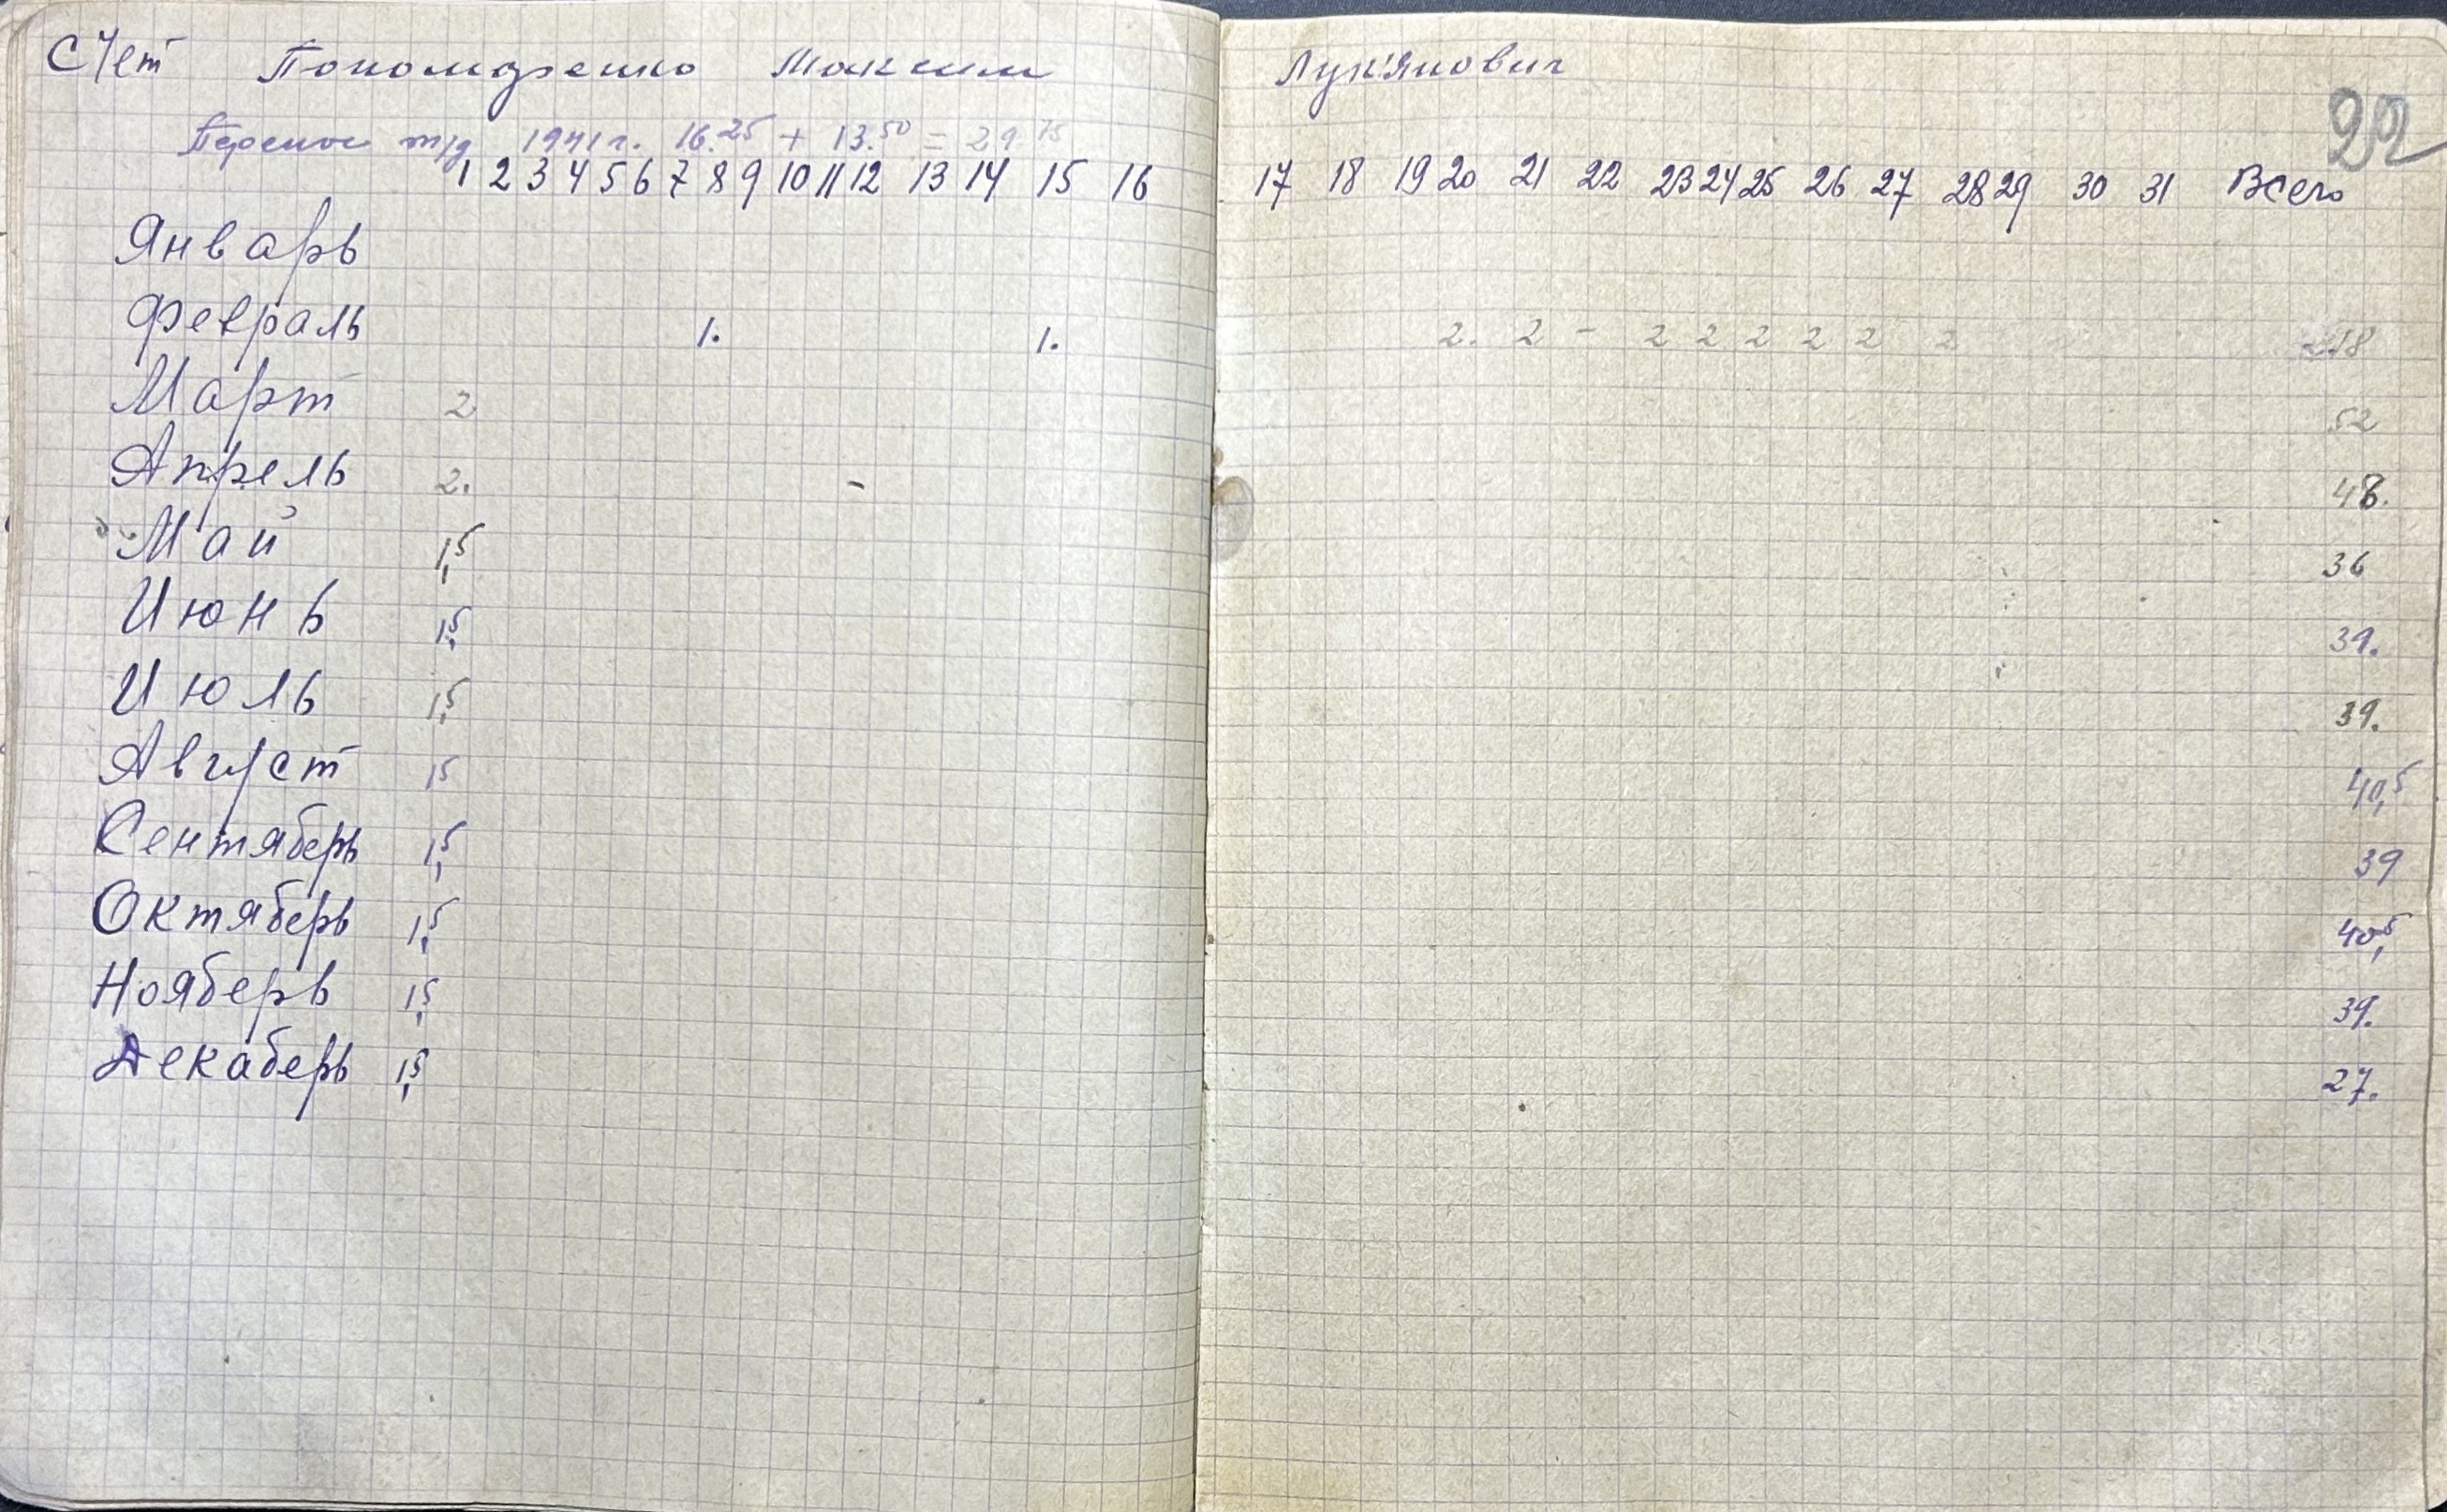 Счет Пономаренко Максим Лук'янович
22
Перенос т/д 1941 г. 16.25 + 13.50 = 29 75
1 2 3 4 5 6 7 8 9 10 11 12 13 14 15 16 17 18 19 20 21 22 23 24 25 26 27 28 29 30 31 Всего
Январь
Февраль 1. 1. 2. 2 - 2 2 2 2 2 2 18
Март 2 52
Апрель 2. - 48.
Май 1,5 36
Июнь 1,5 39.
Июль 1,5 39.
Август 15 40,5
Сентяберь 1,5 39
Октяберь 1,5 40,5
Нояберь 1,5 39.
Декаберь 1,5 27.